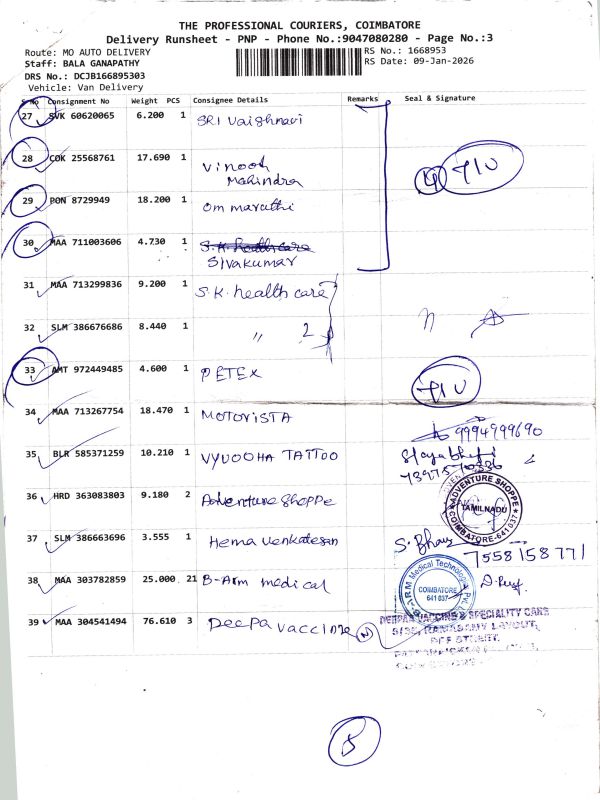 THE PROFESSIONAL COURIERS, COIMBATORE
Delivery Runsheet - PNP - Phone No.:9047080280 - Page No.:3
Route: MO AUTO DELIVERY
RS No.: 1668953
Staff: BALA GANAPATHY
RS Date: 09-Jan-2026
DRS No.: DCJB166895303
Vehicle: Van Delivery
S No Consignment No Weight PCS Consignee Details Remarks Seal & Signature
27 SVK 60620065 6.200 1 SRI Vaishnavi
28 COK 25568761 17.690 1 Vinoth
Mahindra
29 PON 8729949 18.200 1 Om marathi
30 MAA 711003606 4.730 1 S.K. health care
Sivakumar
31 MAA 713299836 9.200 1 S.K. health care
32 SLM 386676686 8.440 1 " 2
33 AMT 972449485 4.600 1 PETEX
34 MAA 713267754 18.470 1 MOTORISTA
9994999690
35 BLR 585371259 10.210 1 VYUOOHA TATTOO
7397570336
36 HRD 363083803 9.180 2 Adventure Shoppe
ADVENTURE SHOPPE
TAMILNADU
COIMBATORE-641037
37 SLM 386663696 3.555 1 Hema Venkatesan
7558158771
38 MAA 303782859 25.000 21 B-Arm medical
COIMBATORE
641 037
39 MAA 304541494 76.610 3 Deepa vaccine N
DEEPAA VACCINE & SPECIALITY CARE
RAMASAMY LAYOUT,